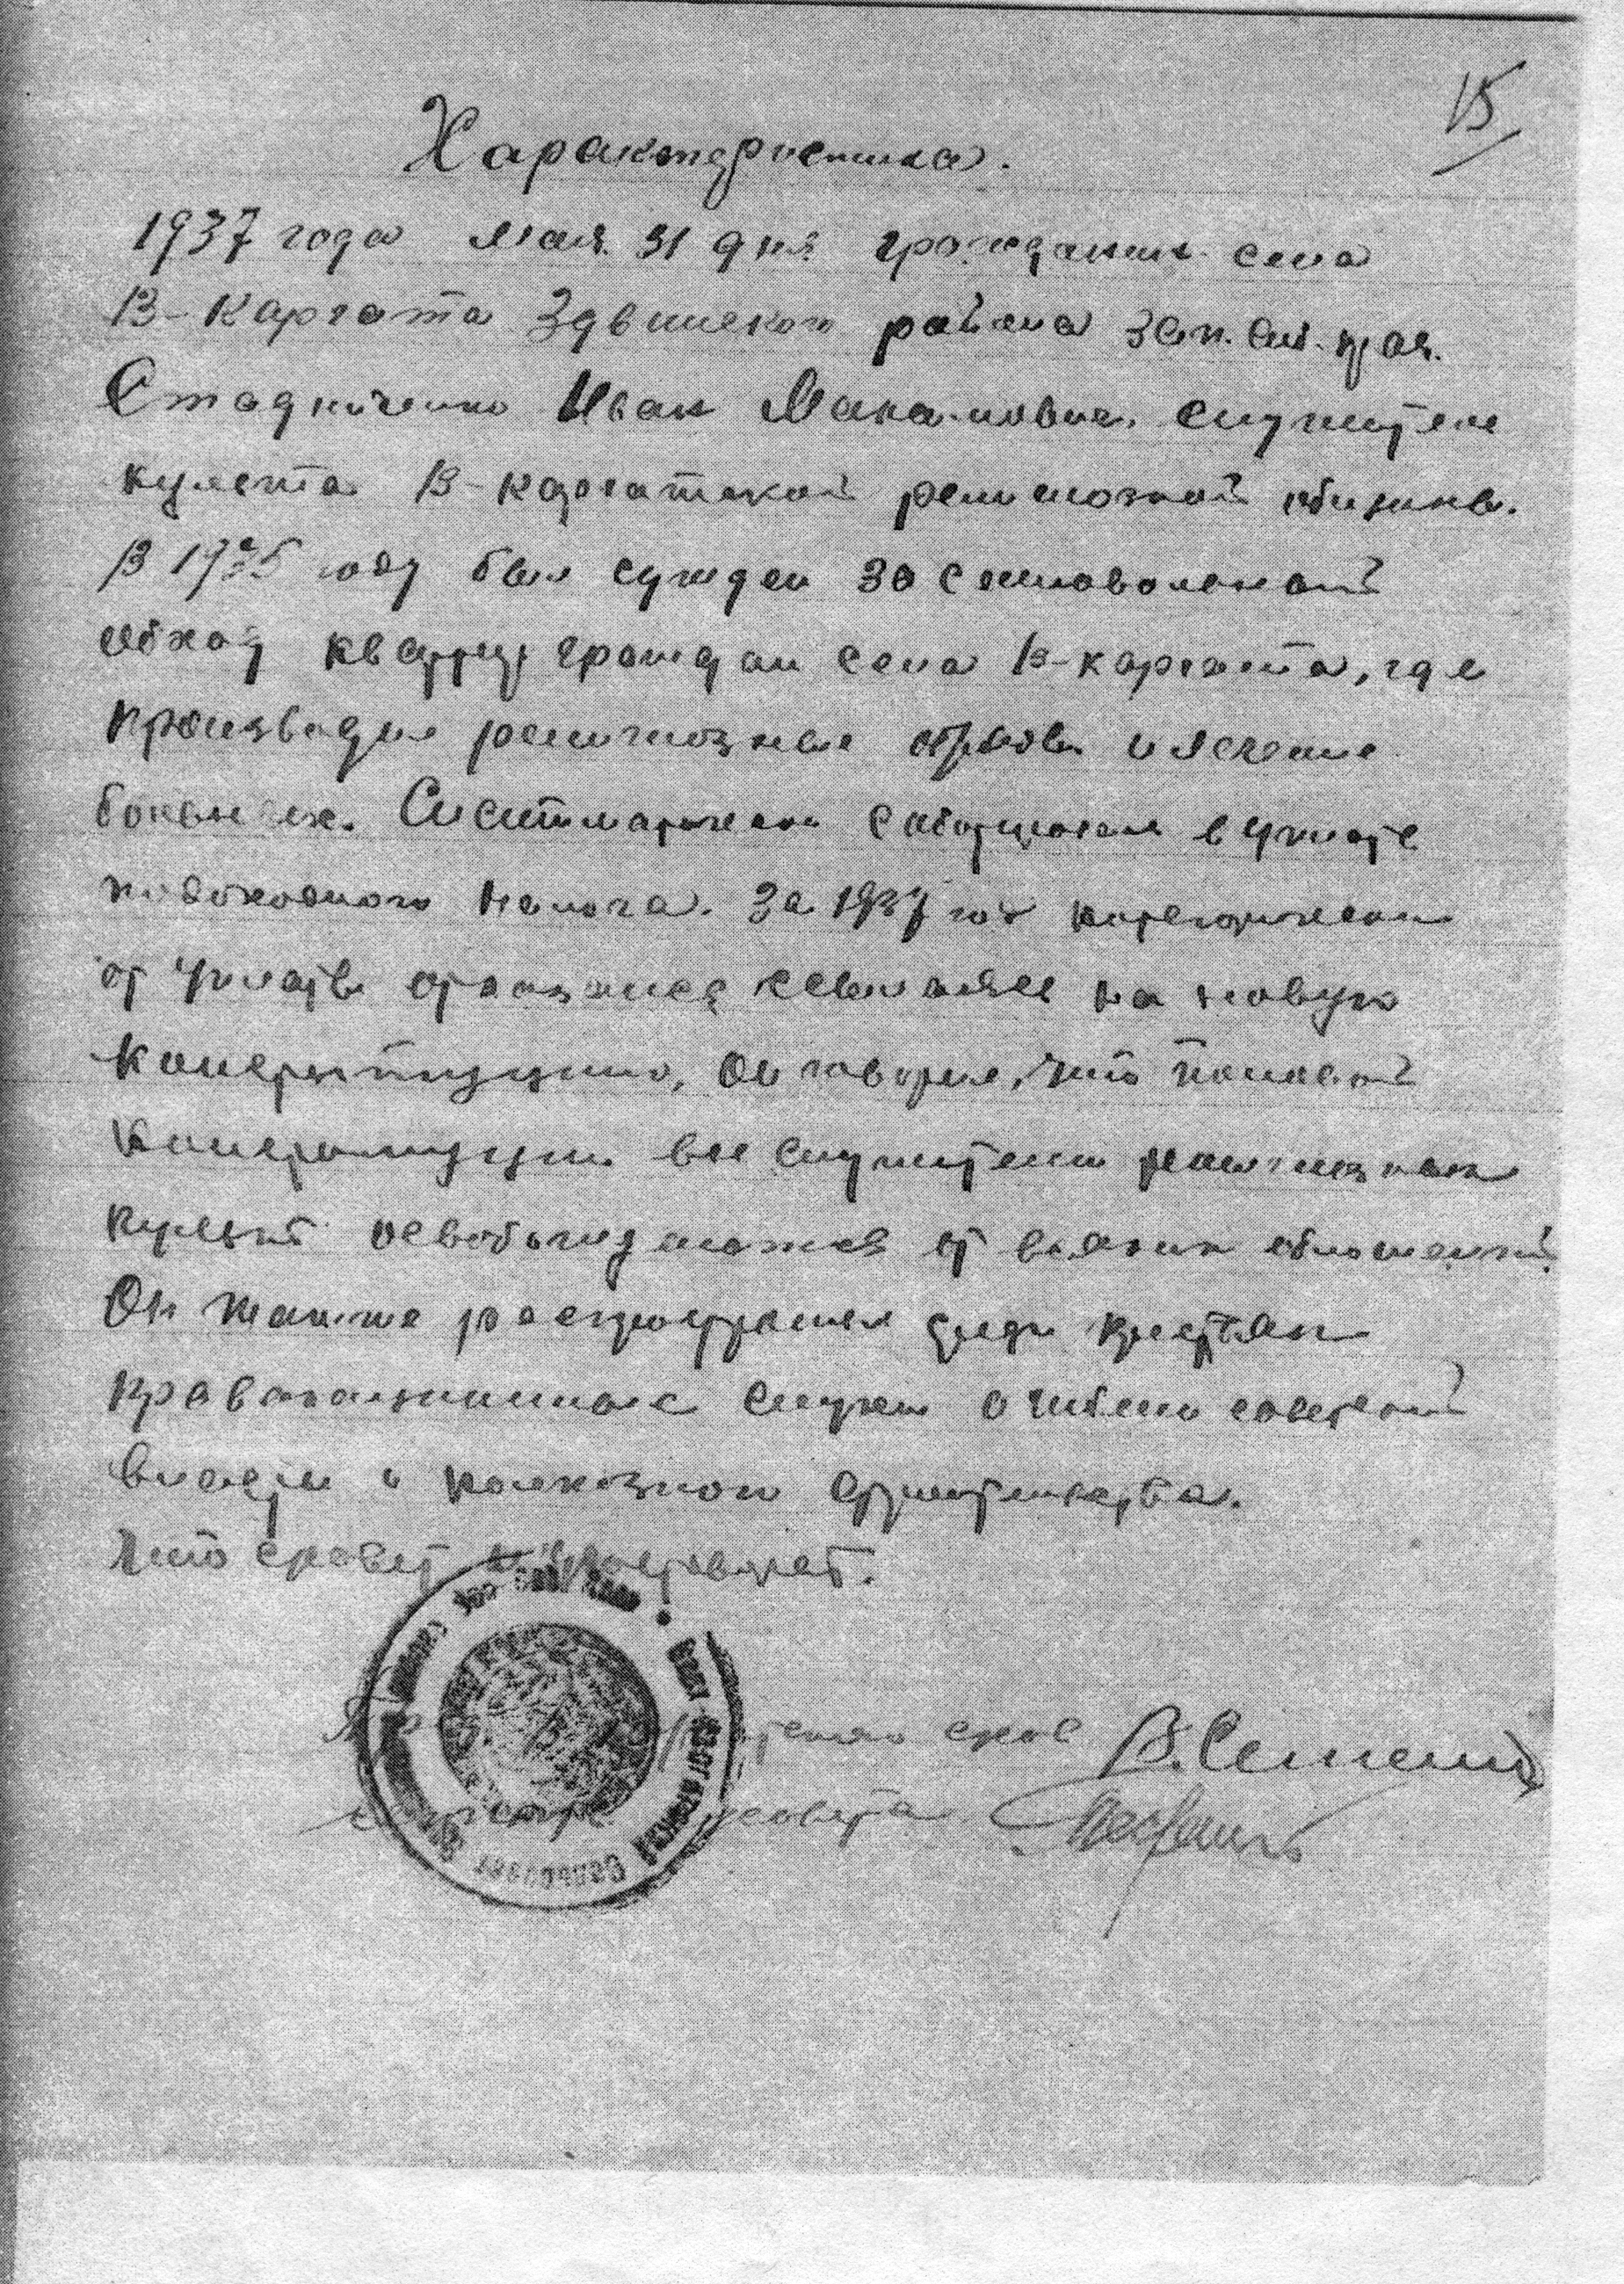 15
Характеристика.
1937 года мая 31 дня гражданин села
В-Каргата Здвинского района Зап. Сиб. края.
Стадниченко Иван служителе
культа В-Каргатской религиозной общины.
В 1935 году был сужден за самовольной
обход квартир граждан села В-Каргата, где
производил религиозные обряды и лечение
больных. Систематически саботировал в уплате
подоходного налога. За 1937 год категорически
от уплаты отказался ссылаясь на новую
Конституцию, он говорил, что по новой
Конституции все служители религиозных
культ освобождаются от всяких обложений.
Он также распространял среди крестьян
провокационные слухи о гибели советской
власти и колхозного строительства.
Что сповет удостоверяет.
В. Семени
совета
Сельсовет